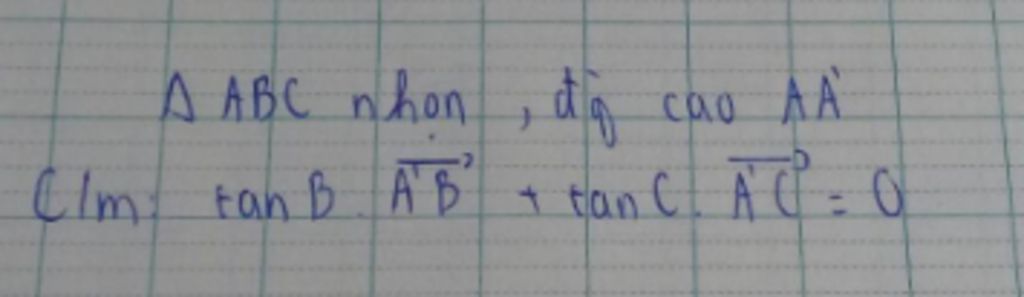 Δ ABC nhọn , đg cao AA'
C/m: tan B . \overrightarrow{A'B} + tan C . \overrightarrow{A'C} = 0